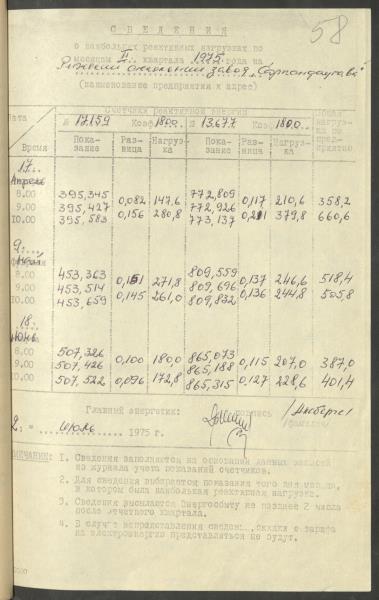 58
СВЕДЕНИЯ
о наибольших реактивных нагрузках по
месяцам II квартала 1975 года на
Рижский опытный завод
(наименование предприятия и адрес)
Счетчики реактивной энергии
Дата № 17159 Коэф. 1800. № 13.677. Коэф. 1800.
Время Пока-зание Раз-ница Нагруз-ка Пока-зание Раз-ница Нагруз-ка нагруз-ка по пред-приятию
17.
Апрель
8.00 395,345 772,809
9.00 395,427 0,082 147,6 772,926 0,117 210,6 358,2
10.00 395,583 0,156 280,8 773,137 0,211 379,8 660,6
9.
май
8.00 453,363 809,559
9.00 453,514 0,151 271,8 809,696 0,137 246,6 518,4
10.00 453,659 0,145 261,0 809,832 0,136 244,8 505,8
18.
Июнь
8.00 507,326 865,073
9.00 507,426 0,100 180,0 865,188 0,115 207,0 387,0
10.00 507,522 0,096 172,8 865,315 0,127 228,6 401,4
Главный энергетик: подпись
(фамилия)
2. " июль 1975 г.
МЕЧАНИЕ: 1. Сведения заполняются на основании данных записей
из журнала учета показаний счетчиков.
2. Для сведения выбирается показания того дня месяца,
в котором была наибольшая реактивная нагрузка.
3. Сведения высылается Энергосбыту не позднее 2 числа
после отчетного квартала.
4. В случае непредставления сведен..., скидки с тарифа
на электроэнергию представляться не будут.